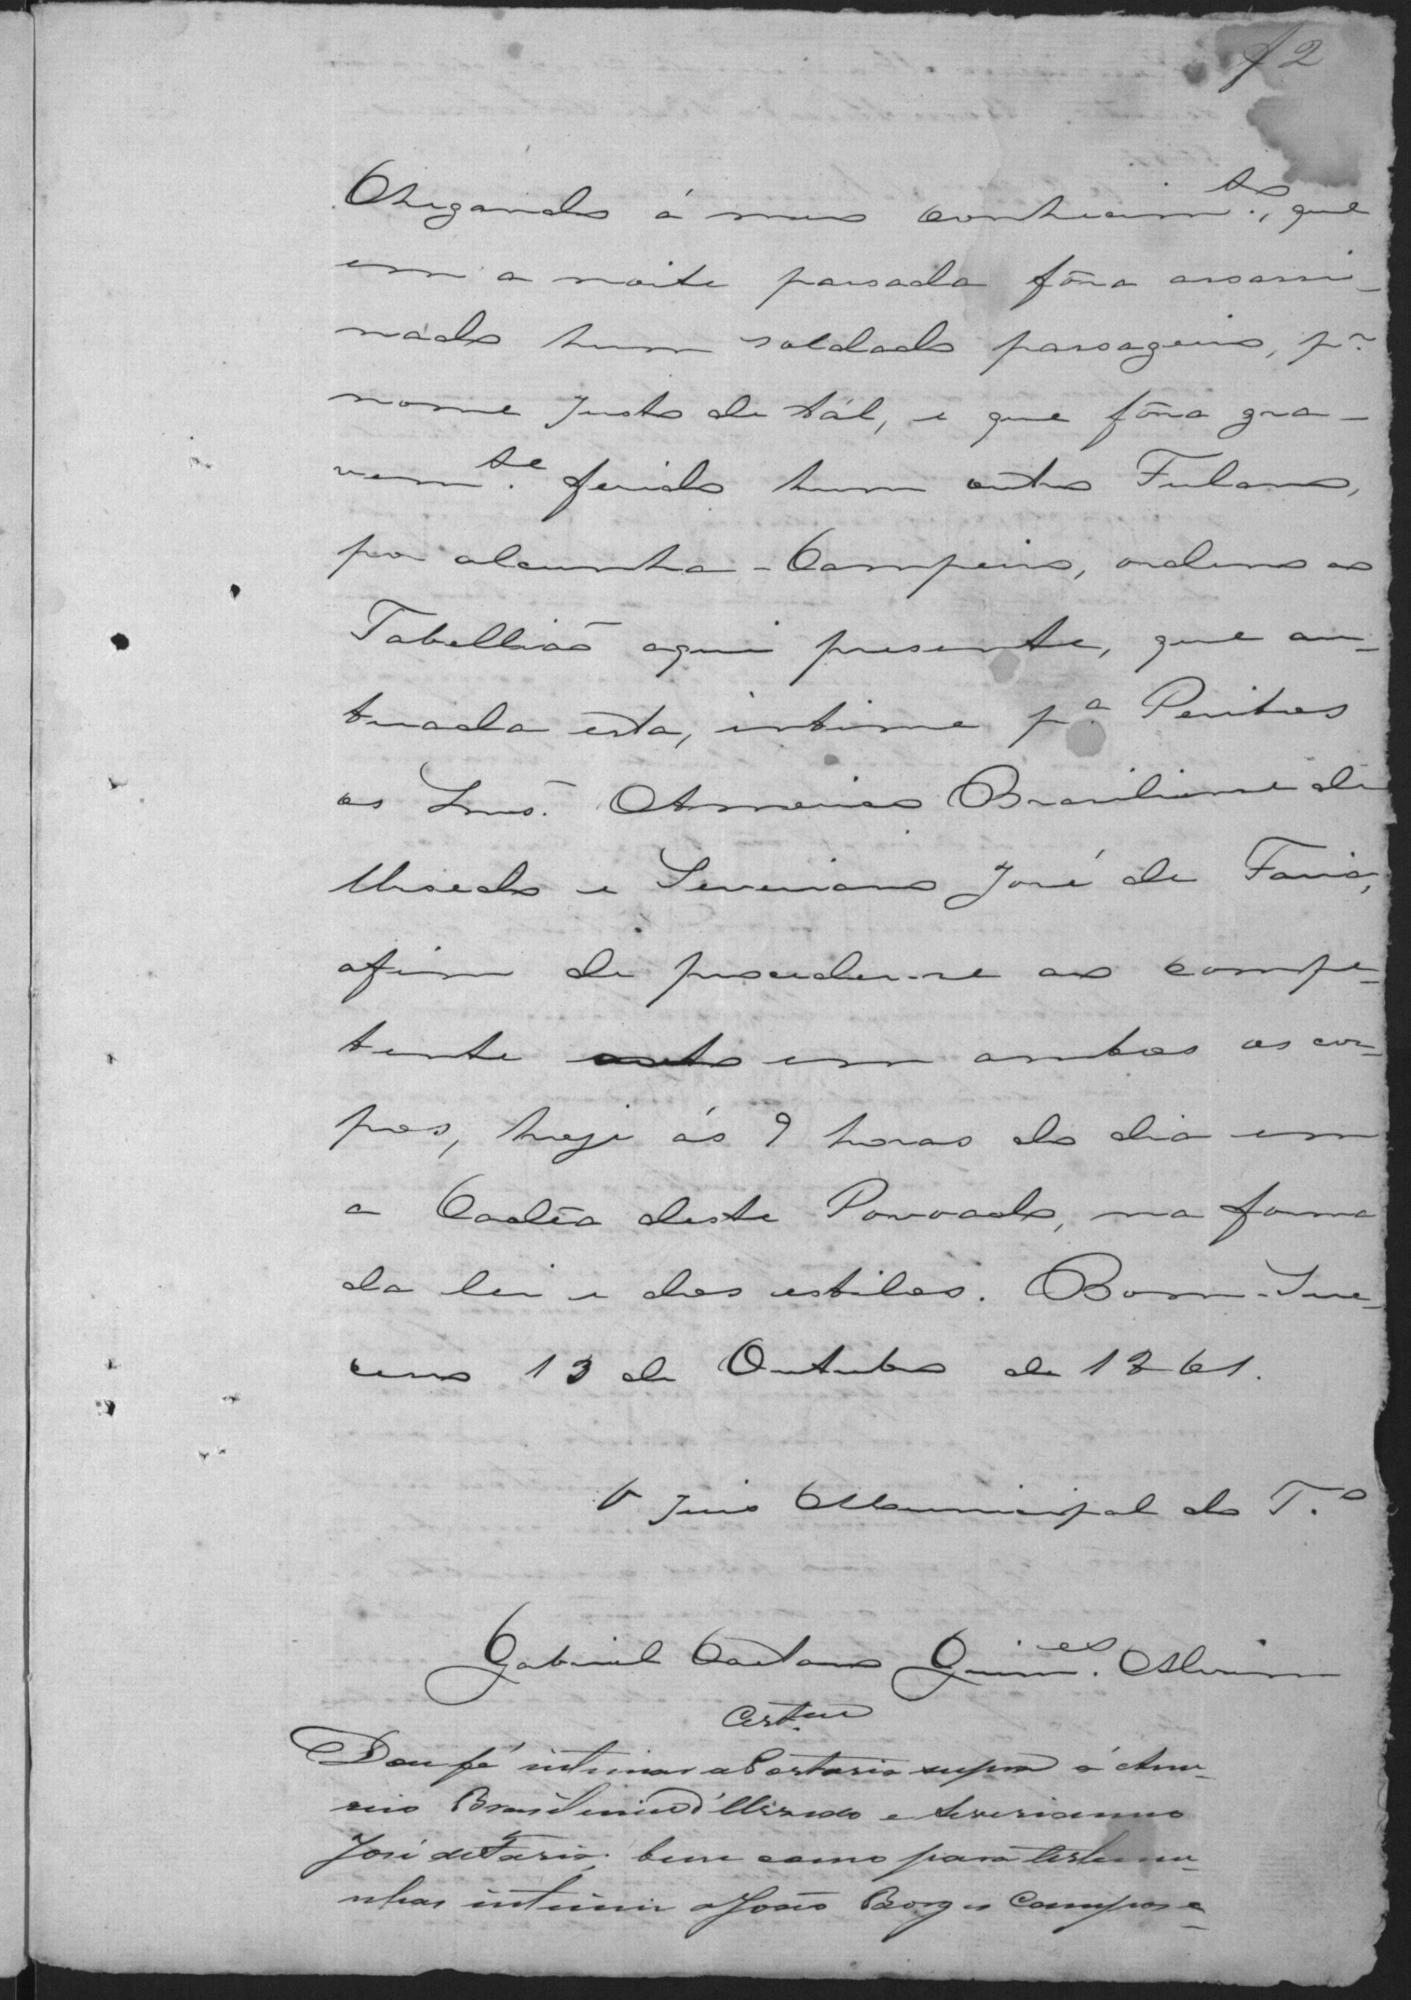 f 2
Chegando á meu conhecim.to, que
em a noite passada fôra assassi-
nado hum soldado passageiro, p.r
nome Justo de tál, e que fôra gra-
vem.te ferido hum outro Fulano,
por alcunha - Campeiro, ordeno ao
Tabellião aqui presente, que au-
tuada esta, intime p.a Peritos
os Snrs. Americo Brasiliense de
Azevedo e Severiano José de Faria,
afim de proceder-se ao compe-
tente auto em ambos os cor-
pos, hoje ás 9 horas do dia em
a Cadêa deste Povoado, na forma
da lei e dos estilos. Bom-Suc-
cesso 13 de Outubro de 1861.
O Juis Municipal do T.o
Gabriel Caetano Guim.es Alvim
Dou fé intimar a Portaria supra á Ame-
rico Brasiliense d'Azevedo e Severianno
José de Faria, bem como para testemu-
nhas intimei a João Borges Campos e